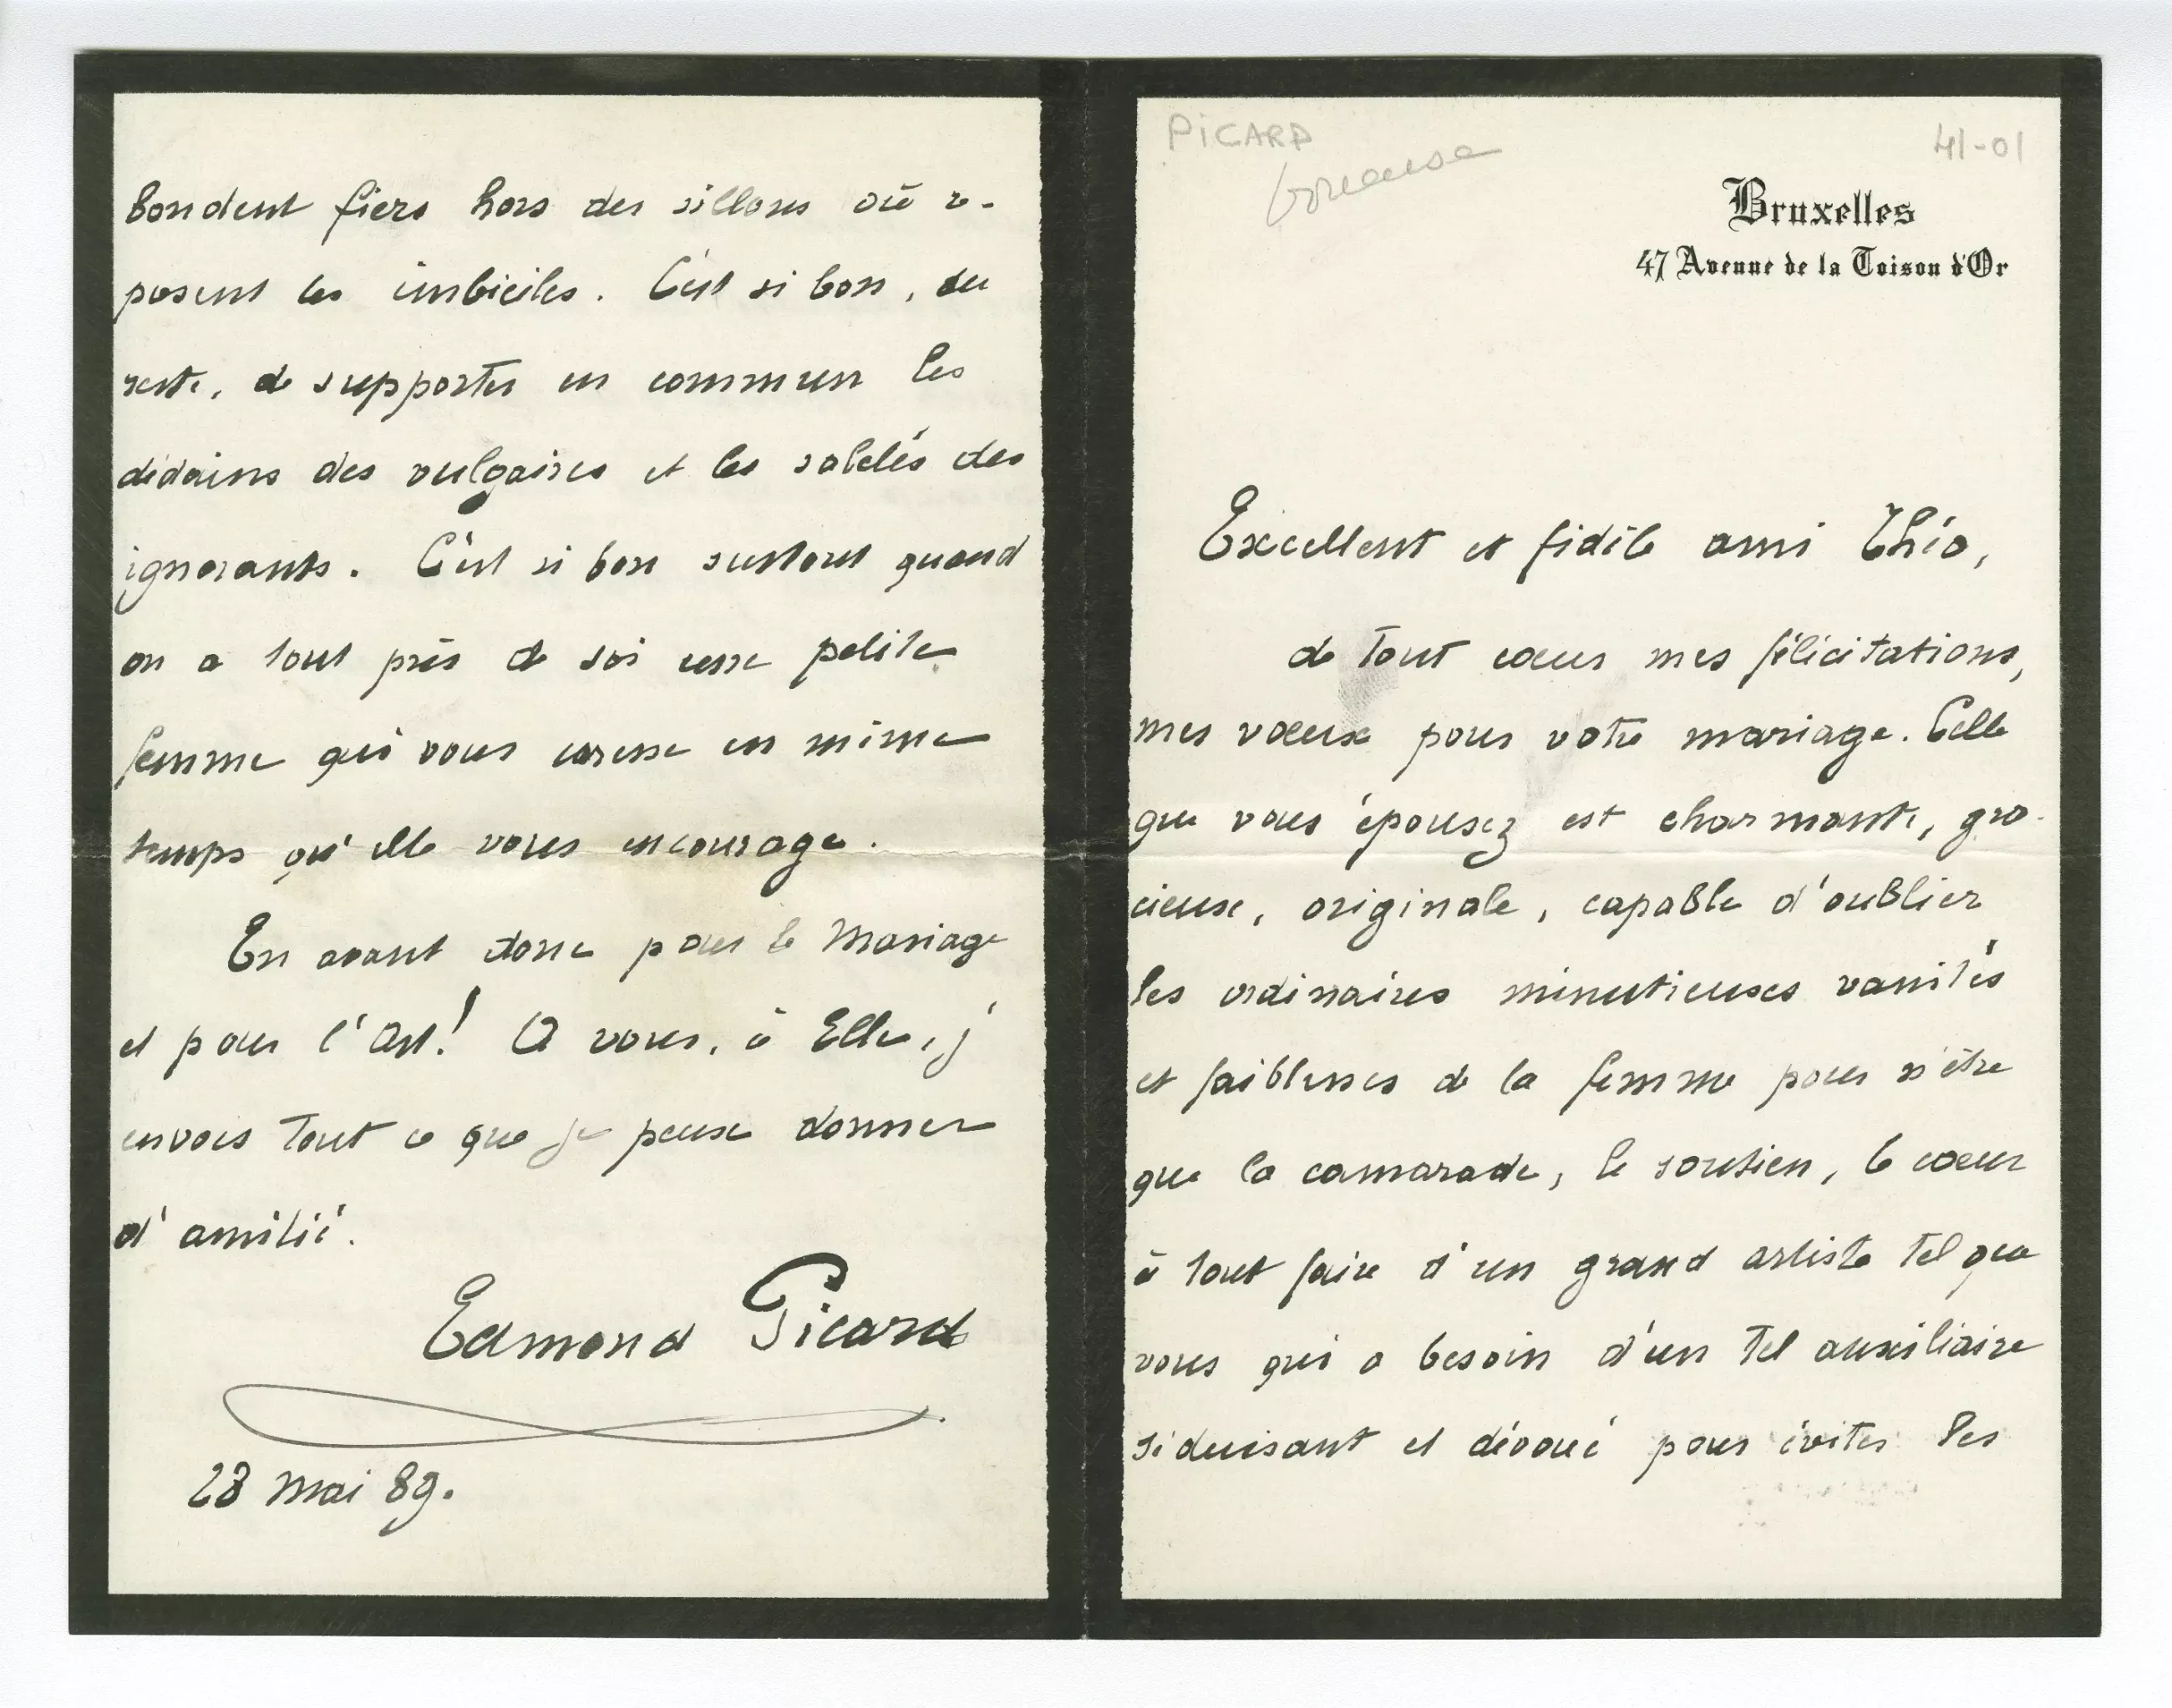 PICARD
41-01
Bruxelles
47 Avenue de la Toison d'Or
Excellent et fidèle ami Théo,
de tout cœur mes félicitations,
mes vœux pour votre mariage. Celle
que vous épousez est charmante, gra-
cieuse, originale, capable d'oublier
les ordinaires minutieuses vanités
et faiblesses de la femme pour n'être
que la camarade, le soutien, le cœur
à tout faire d'un grand artiste tel que
vous qui a besoin d'un tel auxiliaire
séduisant et dévoué pour éviter les
bondent fiers hors des sillons où re-
posent les imbéciles. C'est si bon, du
reste, de supporter en commun les
dédains des vulgaires et les saletés des
ignorants. C'est si bon surtout quand
on a tout près de soi une petite
femme qui vous caresse en même
temps qu'elle vous encourage.
En avant donc pour le Mariage
et pour l'Art! A vous, à Elle, j'
envois tout ce que je peux donner
d'amitié.
Edmond Picard
28 mai 89.